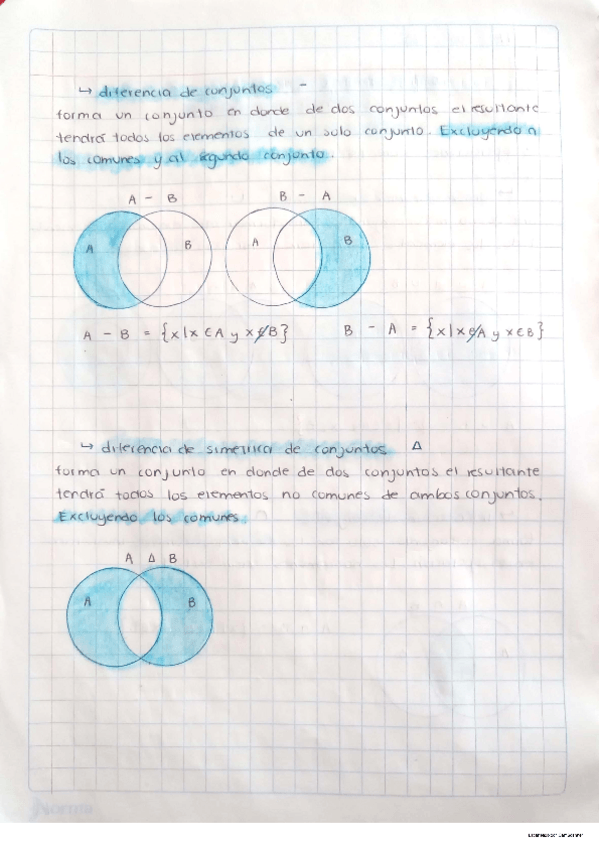 ↳ diferencia de conjuntos -
forma un conjunto en donde de dos conjuntos el resultante
tendrá todos los elementos de un solo conjunto. Excluyendo a
los comunes y al segundo conjunto.
A - B
B - A
A B
A B
A - B = {x|x ∈ A y x ∉ B}
B - A = {x|x ∉ A y x ∈ B}
↳ diferencia de simétrica de conjuntos Δ
forma un conjunto en donde de dos conjuntos el resultante
tendrá todos los elementos no comunes de ambos conjuntos.
Excluyendo los comunes.
A Δ B
A B
Norma